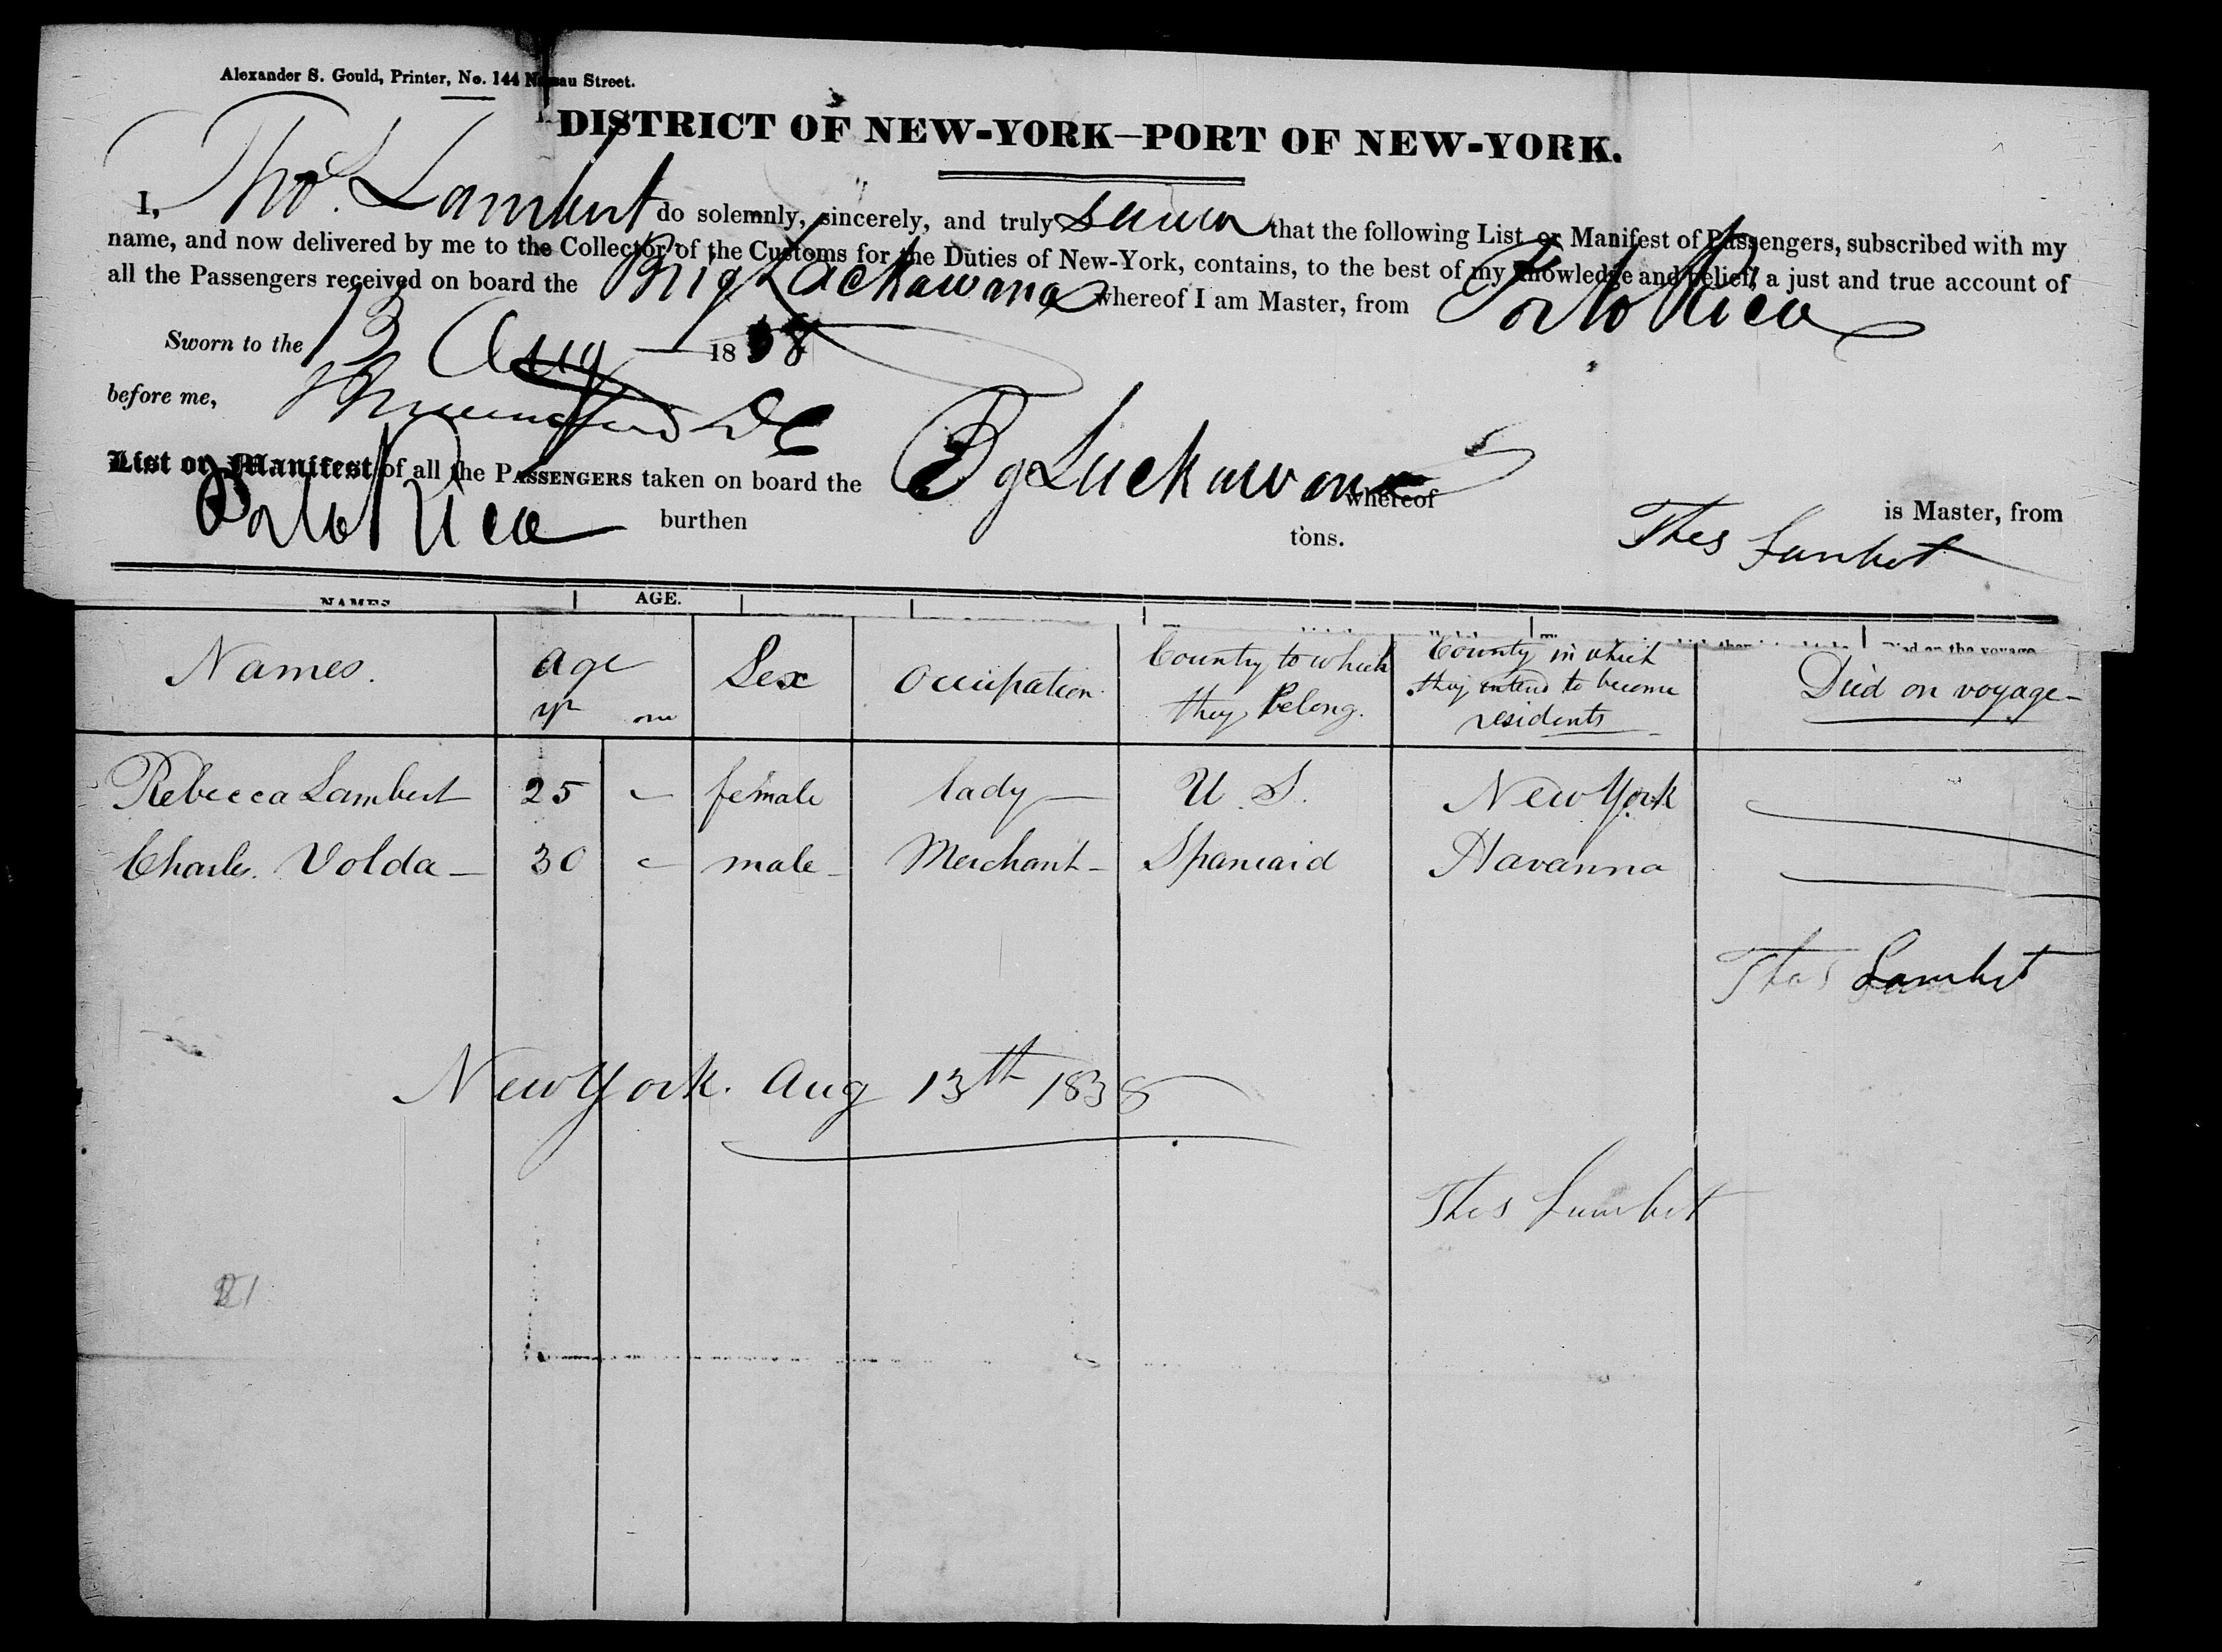 Alexander S. Gould, Printer, No. 144 Nassau Street.
DISTRICT OF NEW-YORK—PORT OF NEW-YORK.
I, Thos. Lambert do solemnly, sincerely, and truly swear that the following List or Manifest of Passengers, subscribed with my
name, and now delivered by me to the Collector of the Customs for the Duties of New-York, contains, to the best of my knowledge and belief, a just and true account of
all the Passengers received on board the Brig Lackawana whereof I am Master, from Porto Rico
Sworn to the 13 Aug 1838
before me,
List or Manifest of all the PASSENGERS taken on board the Bg Lackawana whereof Thos Lambert is Master, from
Porto Rico burthen tons.
NAMES AGE. Died on the voyage
Names. Age Sex Occupation Country to which they belong. County in which they intend to become residents Died on voyage
Rebecca Lambert 25 - female lady U. S. New York
Charles. Volda 30 - male Merchant Spaniard Havanna
Thos Lambert
New York. Aug 13th 1838
Thos Lambert